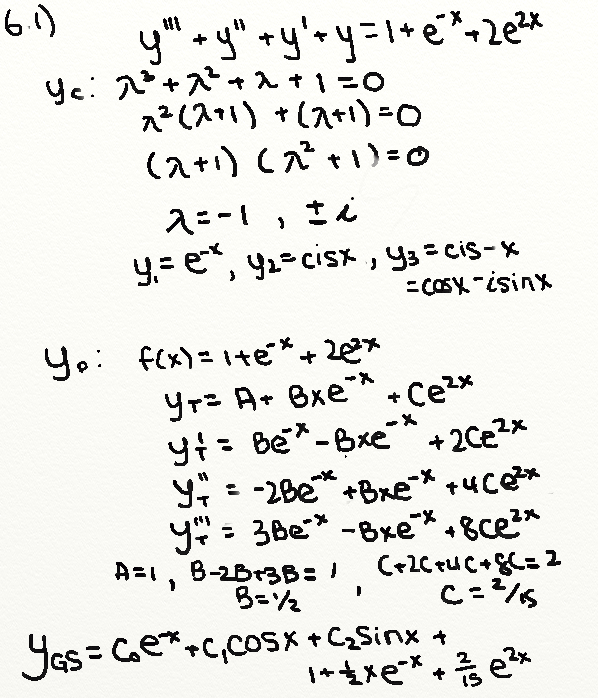 6.1)
y''' + y'' + y' + y = 1 + e^-x + 2e^2x
y_c: λ³ + λ² + λ + 1 = 0
λ²(λ+1) + (λ+1) = 0
(λ+1)(λ² + 1) = 0
λ = -1, ± i
y₁ = e^-x, y₂ = cisx, y₃ = cis-x
= cosx - isinx
y_p: f(x) = 1 + e^-x + 2e^2x
y_T = A + Bxe^-x + Ce^2x
y_T' = Be^-x - Bxe^-x + 2Ce^2x
y_T'' = -2Be^-x + Bxe^-x + 4Ce^2x
y_T''' = 3Be^-x - Bxe^-x + 8Ce^2x
A=1, B-2B+3B=1, C+2C+4C+8C=2
B=1/2 C=2/15
y_GS = C₀e^-x + C₁cosx + C₂sinx +
1 + 1/2 xe^-x + 2/15 e^2x